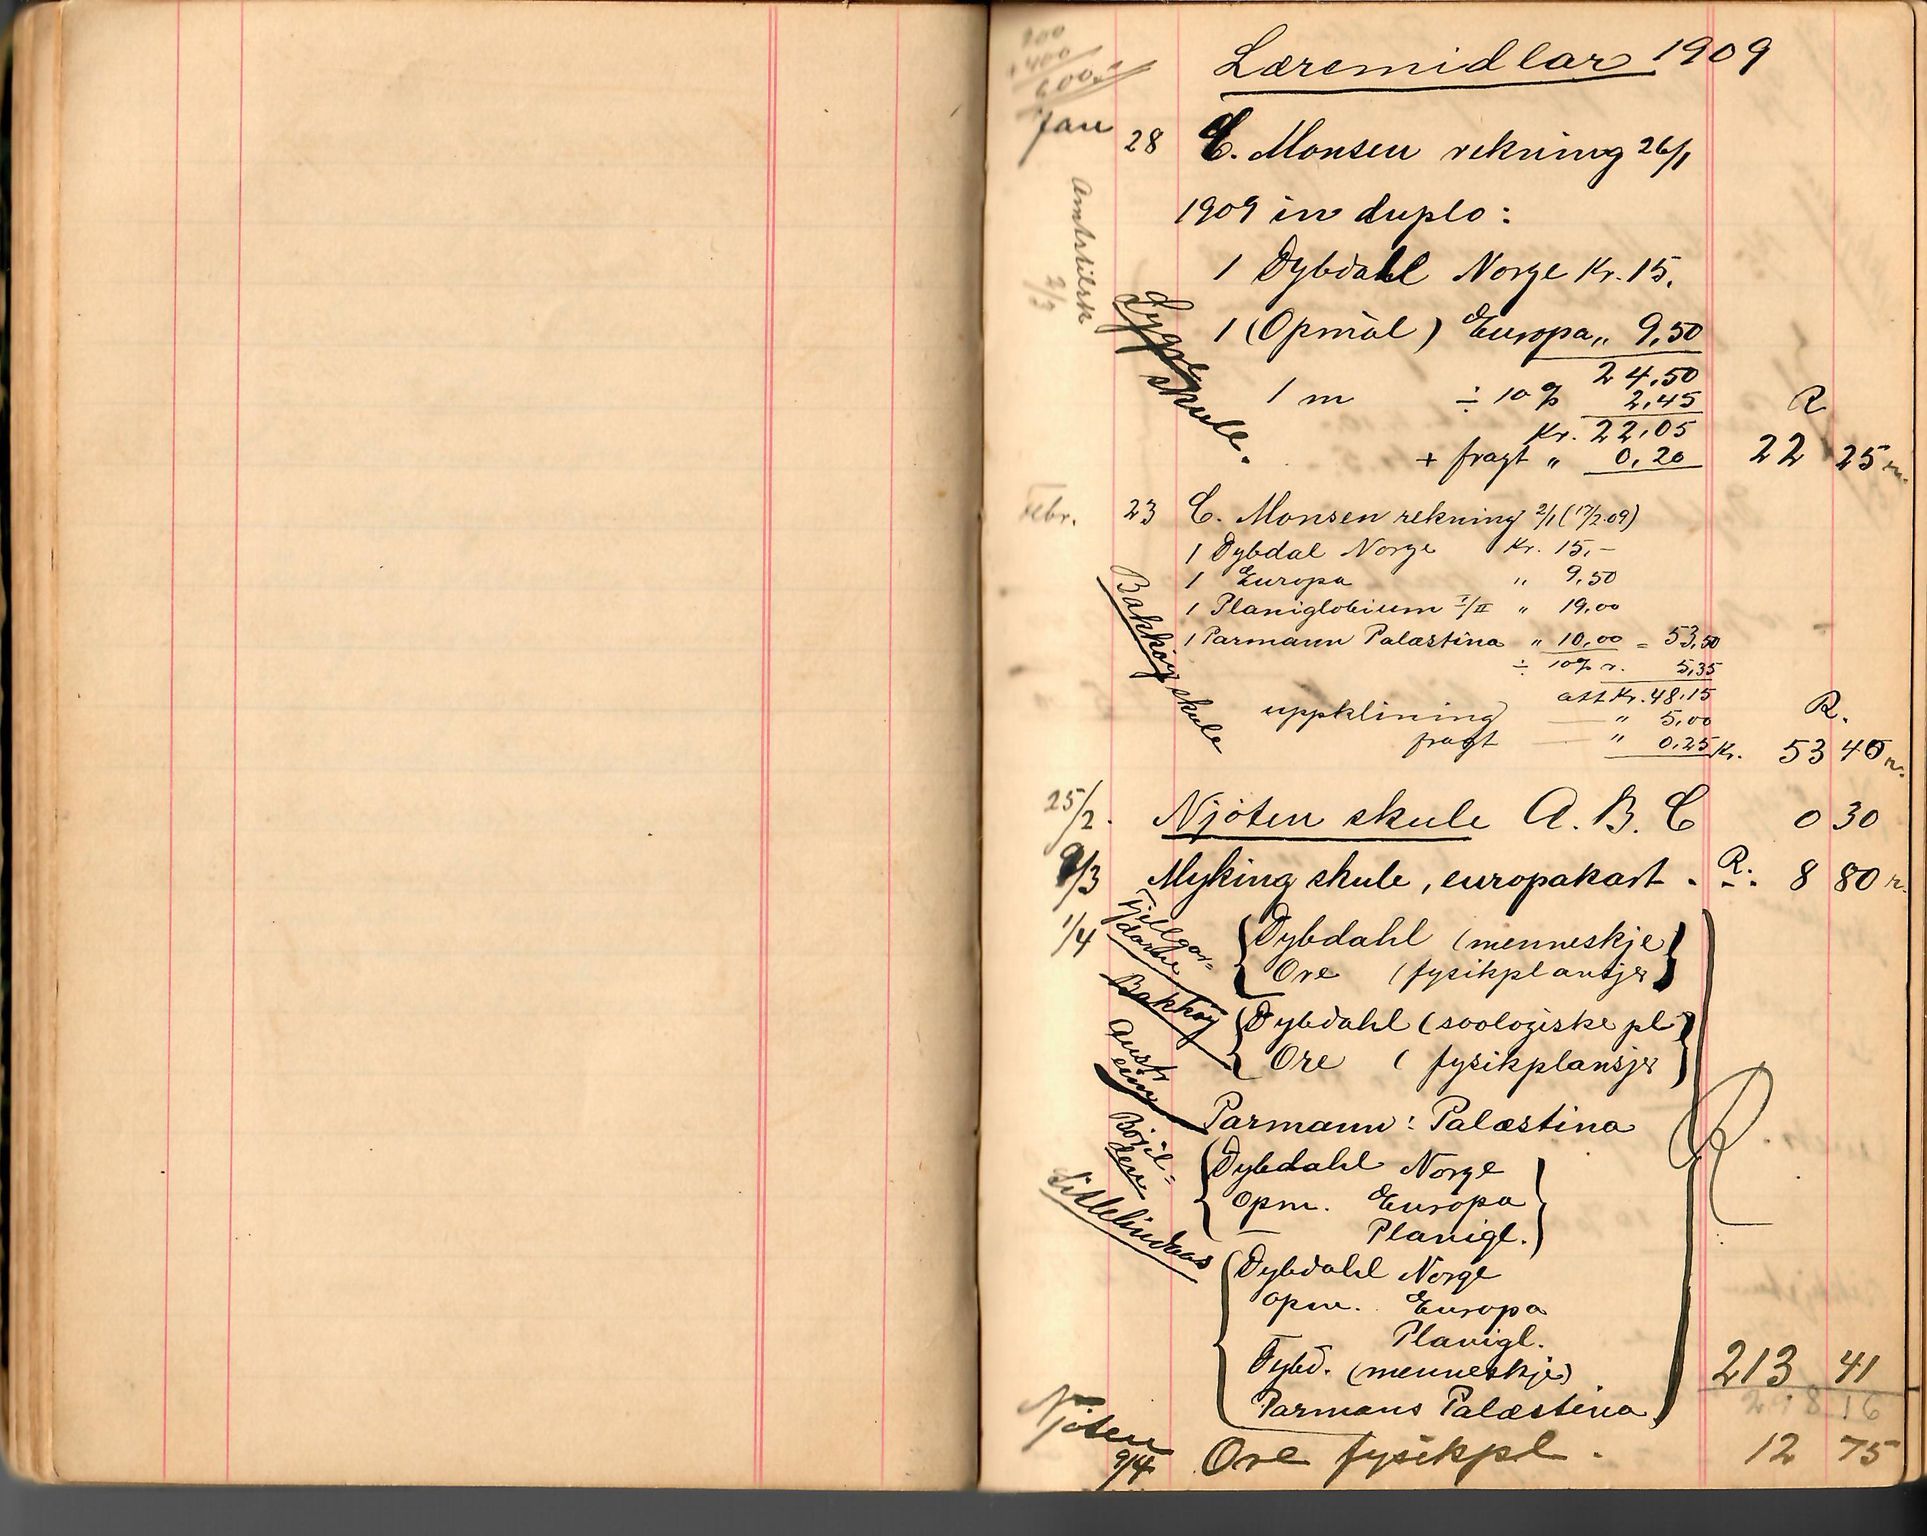 Læremidlar 1909
200
+400
600
Jan 28 C. Monsen rekning 26/1
1909 in duplo:
Amtstilsk
2/3
1 Dybdahl Norge Kr. 15.
1 (Opmål) Europa „ 9,50
24,50
1 m ÷ 10 % 2,45
R
Kr. 22,05
+ fragt „ 0,20 22 25
Lygre skule.
Febr. 23 C. Monsen rekning 2/1 (17/2 09)
1 Dybdal Norge Kr. 15,-
1 Europa „ 9,50
1 Planiglobium I/II „ 19,00
1 Parmann Palæstina „ 10,00 = 53,50
÷ 10% r. 5,35
att Kr. 48,15
uppklining „ 5,00
R.
fragt „ 0,25 Kr. 53 40
Bakkøy skule
25/2. Njøten skule A. B. C 0 30
9/3 Myking skule, europakart. R. 8 80
1/4 Fjellgardane
Dybdahl (menneskje)
Ore (fysikplansjer)
Bakkøy
Dybdahl (soologiske pl)
Ore ( fysikplansjer
Austreim
Parmann: Palæstina
R.
Bøjilden
Dybdahl Norge
Opm. Europa
Planigl.
Lillelindaas
Dybdahl Norge
opm. Europa
Planigl.
Dybd. (menneskje)
213 41
Parmans Palæstina
Njøten
9/4 Ore fysikpl. 12 75